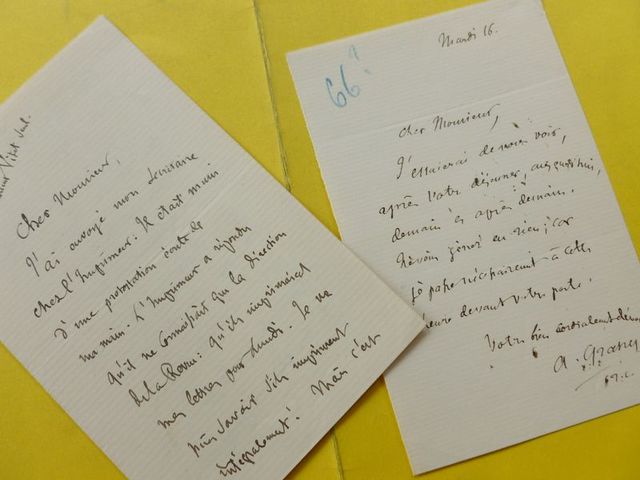 Cher Monsieur,
J'ai envoyé mon
chez l'Imprimeur. Il était muni
d'une protestation écrite de
ma main. L'Imprimeur a répondu
qu'il ne connaissait que la direction
de la Revue : qu'ils imprimeront
mes lettres pour Lundi. Je ne
puis savoir s'ils impriment
intégralement! Mais c'est
Mardi 16.
66?
Cher Monsieur,
J'essaierai de vous voir,
après votre déjeuner, aujourd'hui,
demain et après demain.
gêné en rien; car
je passe nécessairement à cette
heure devant votre porte.
Votre bien cordialement dévoué
A.